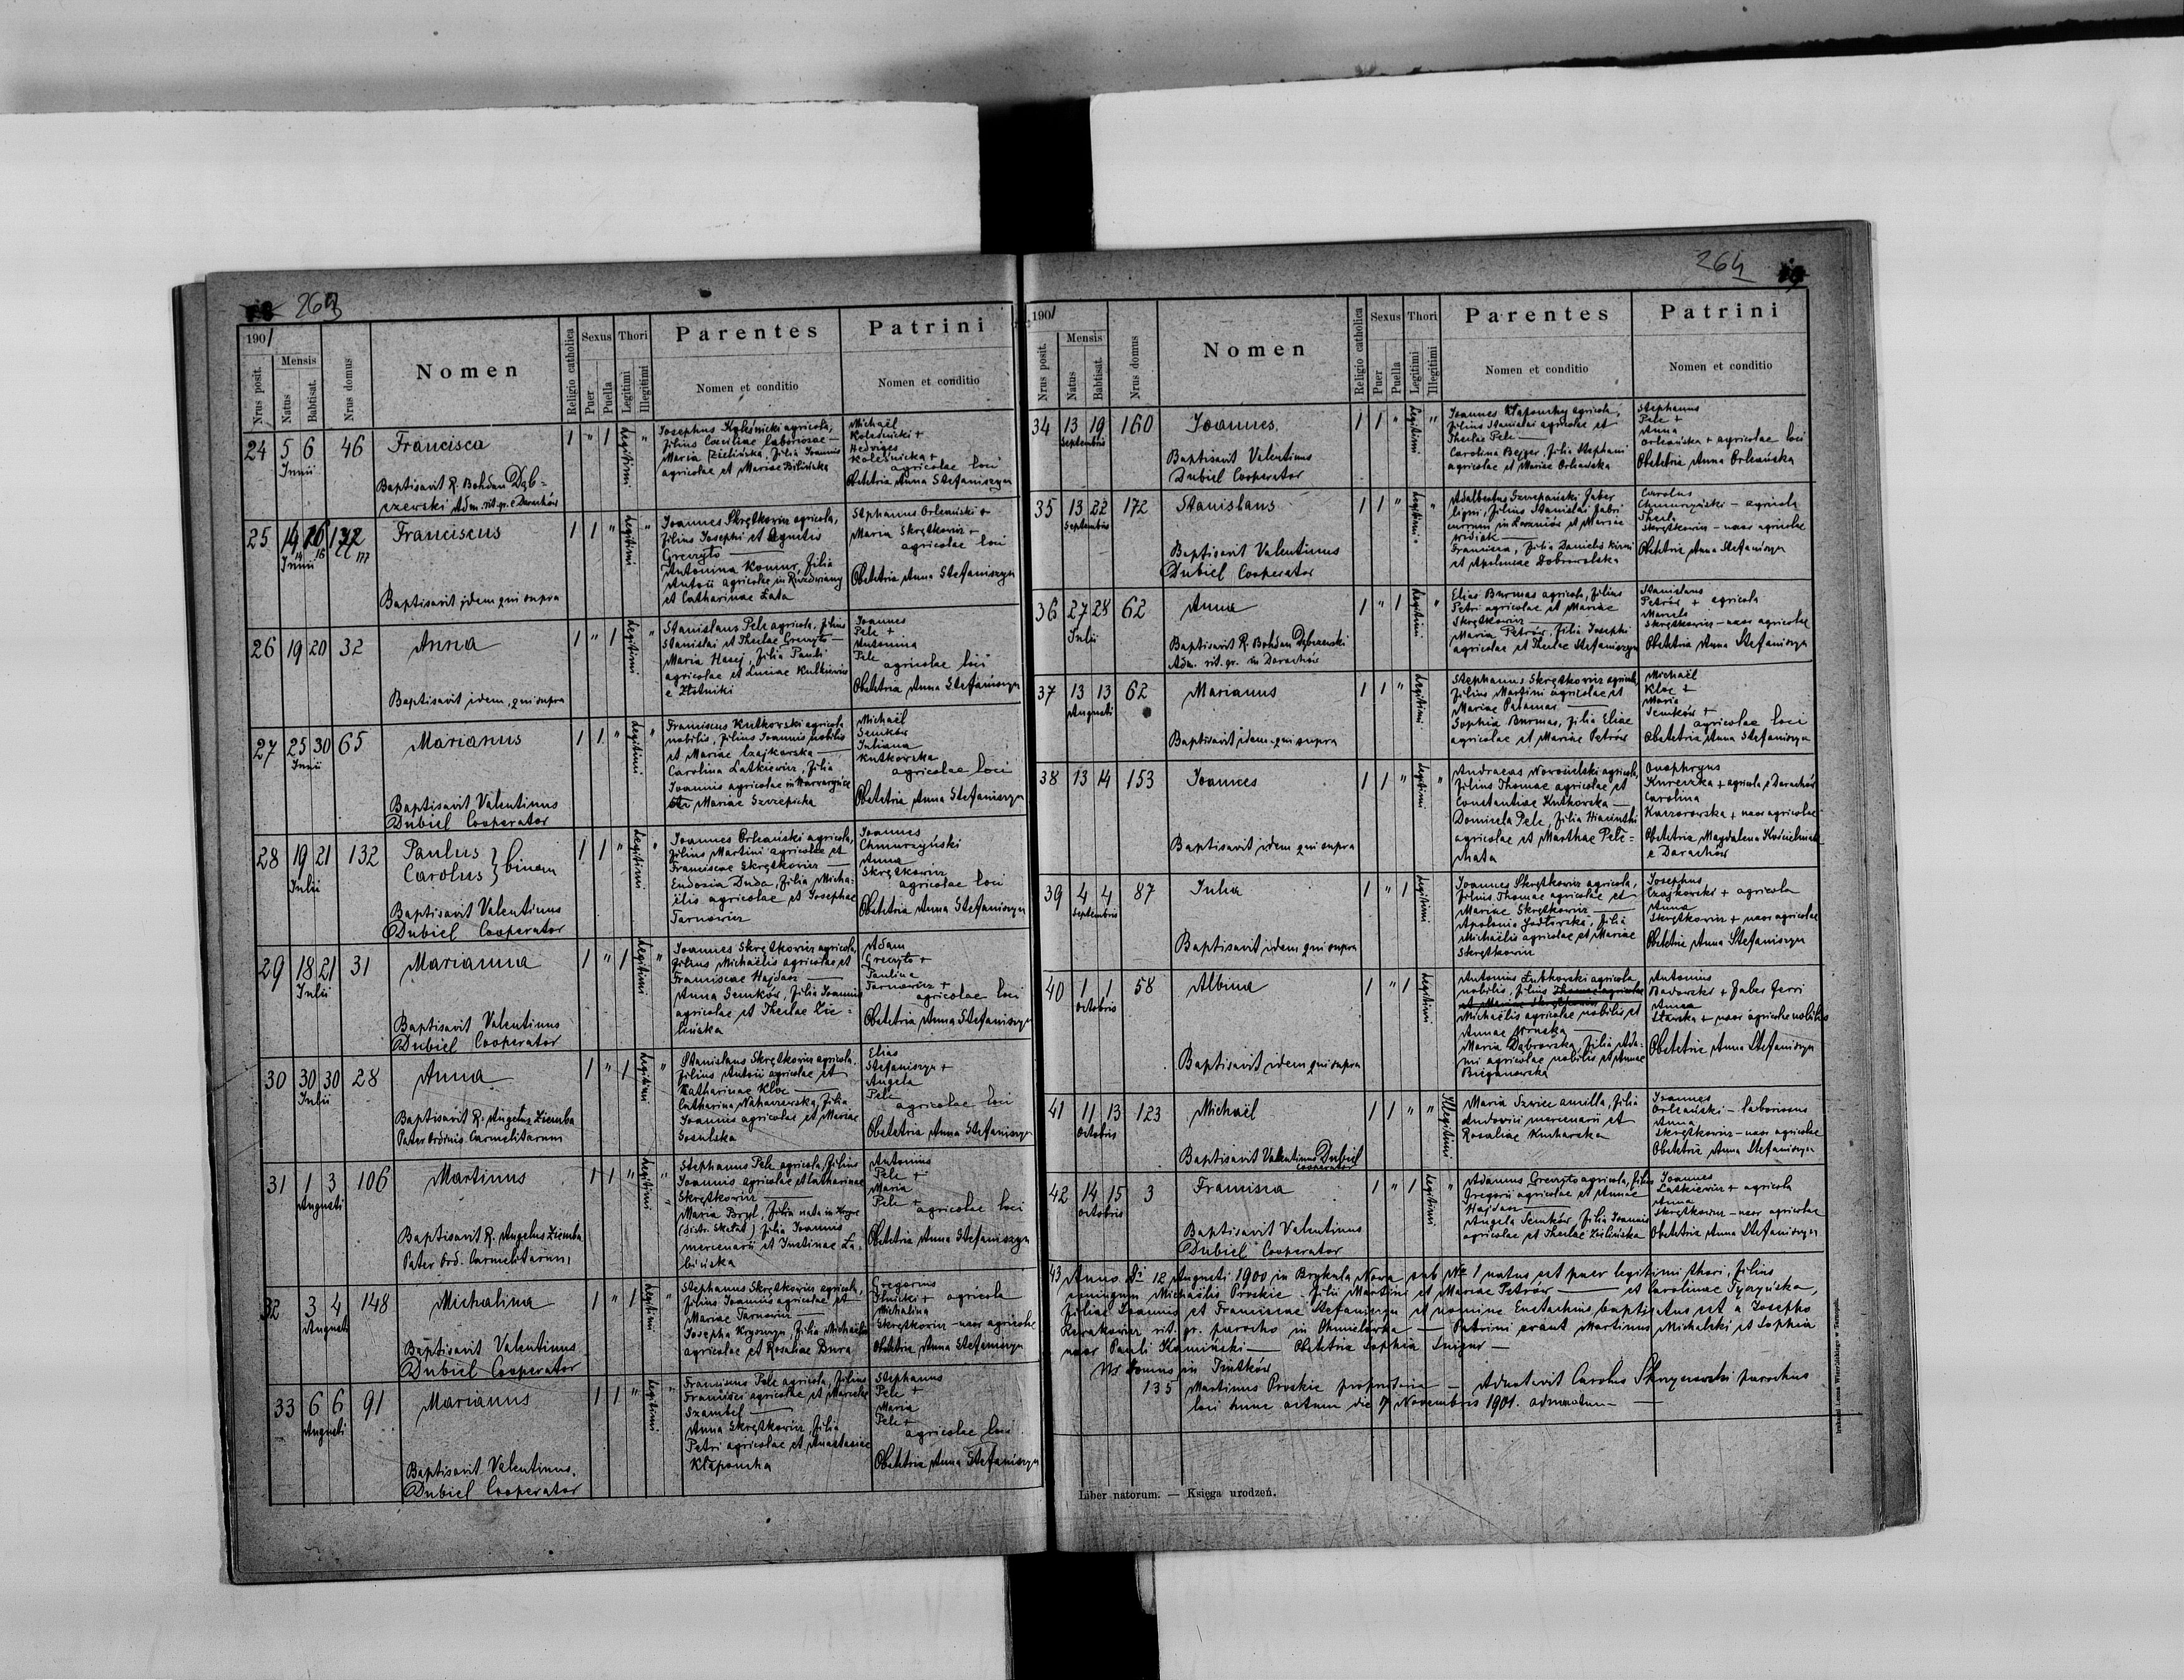 263
1901
Nrus posit.
Mensis
Natus
Babtisat.
Nrus domus
Nomen
Religio catholica
Sexus
Puer
Puella
Thori
Legitimi
Illegitimi
Parentes
Nomen et conditio
Patrini
Nomen et conditio
24 5 6 46 Francisca 1 " 1 Legitimi "
Junii
Baptisavit R. Bohdan Dąb=
rzewski Adm. rit. gr. e Darachów
Josephus Koleśnicki agricola,
filius Caeciliae laboriosae —
Maria Bielińska, filia Joannis
agricolae et Mariae Bilińska
Michaël
Koleśnicki +
Hedviges
Koleśnicka +
agricolae loci
Obstetrix Anna Stefaniszyn
25 14 16 Franciscus 1 1 " Legitimi "
Junii
177
Baptisavit idem qui supra
Joannes Skrętkowicz agricola,
filius Josephi et Agnetis
Greczyło —
Antonina Komur, filia
Antonii agricolae in
et Catharinae Łata
Stephanus Orleański +
Maria Skrętkowicz +
agricolae loci
Obstetrix Anna Stefaniszyn
26 19 20 32 Anna 1 " 1 Legitimi "
Baptisavit idem, qui supra
Stanislaus Pelc agricola, filius
Stanislai et Theclae Greczyło —
Maria Hasej, filia Pauli
agricolae et Luciae Kulkiewicz
e Złotniki
Joannes
Pelc +
Antonina
Pelc
agricolae loci
Obstetrix Anna Stefaniszyn
27 25 30 65 Marianus 1 1 " Legitimi "
Junii
Baptisavit Valentinus
Dubiel Cooperator
Franciscus Kutkowski agricola
nobilis, filius Joannis nobilis
et Mariae Czajkowska —
Carolina Latkiewicz, filia
Joannis agricolae in Warwaryńce
et Mariae Szczepicka
Michaël
Semków
Juliana
Kutkowska
agricolae loci
Obstetrix Anna Stefaniszyn
28 19 21 132 Paulus } binom 1 1 " Legitimi "
Julii Carolus
Baptisavit Valentinus
Dubiel Cooperator
Joannes Orleański agricola,
filius Martini agricolae et
Franciscae Skrętkowicz —
Eudoxia Duda, filia Micha=
ëlis agricolae et Josephae
Tarnowicz
Joannes
Chmurzyński
Anna
Skrętkowicz
agricolae loci
Obstetrix Anna Stefaniszyn
29 18 21 31 Marianna 1 " 1 Legitimi "
Julii
Baptisavit Valentinus
Dubiel Cooperator
Joannes Skrętkowicz agricola,
filius Michaëlis agricolae et
Franciscae Hajdasz —
Anna Semków, filia Joannis
agricolae et Theclae Zie=
lińska
Adam
Greczyło +
Paulina
Tarnowicz +
agricolae loci
Obstetrix Anna Stefaniszyn
30 30 30 28 Anna 1 " 1 Legitimi "
Julii
Baptisavit R. Angelus Ziemba
Pater Ordinis Carmelitarum
Stanislaus Skrętkowicz agricola,
filius Antonii agricolae et
Catharinae Kloc —
Catharina Nahaczewska, filia
Joannis agricolae et Mariae
Gosulska
Elias
Stefaniszyn +
Angela
Pelc
agricolae loci
Obstetrix Anna Stefaniszyn
31 1 3 106 Martinus 1 1 " Legitimi "
Augusti
Baptisavit R. Angelus Ziemba
Pater Ord. Carmelitarum
Stephanus Pelc agricola, filius
Joannis agricolae et Catharinae
Skrętkowicz —
Maria Bryl, filia nata in
(distr. Skałat) filia Joannis
mercenarii et Justinae Ła=
bińska
Antonius
Pelc +
Maria
Pelc +
agricolae loci
Obstetrix Anna Stefaniszyn
32 3 4 148 Michalina 1 " 1 Legitimi "
Augusti
Baptisavit Valentinus
Dubiel Cooperator
Stephanus Skrętkowicz agricola,
filius Joannis agricolae et
Mariae Tarnowicz —
Josepha Kryszczyn, filia Michaëlis
agricolae et Rosaliae Bura
Gregorius
Ilnicki + agricola
Michalina
Skrętkowicz – uxor agricolae
Obstetrix Anna Stefaniszyn
33 6 6 91 Marianus 1 1 " Legitimi "
Augusti
Baptisavit Valentinus
Dubiel Cooperator
Franciscus Pelc agricola, filius
Francisci agricolae et Marcelae
Szambel —
Anna Skrętkowicz, filia
Petri agricolae et Anastasiae
Kłaponcha
Stephanus
Pelc +
Maria
Pelc +
agricolae loci
Obstetrix Anna Stefaniszyn
264
1901
Nrus posit.
Mensis
Natus
Babtisat.
Nrus domus
Nomen
Religio catholica
Sexus
Puer
Puella
Thori
Legitimi
Illegitimi
Parentes
Nomen et conditio
Patrini
Nomen et conditio
34 13 19 160 Joannes 1 1 " Legitimi "
Septembris
Baptisavit Valentinus
Dubiel Cooperator
Joannes Kłaponchy agricola,
filius Stanislai agricolae et
Theclae Pelc —
Carolina Bejger, filia Stephani
agricolae et Mariae Orleańska
Stephanus
Pelc +
Anna
Orleańska + agricolae loci
Obstetrix Anna Orleańska
35 13 22 172 Stanislaus 1 1 " Legitimi "
Septembris
Baptisavit Valentinus
Dubiel Cooperator
Adalbertus Szczepański faber
ligni, filius Stanislai fabri
currum in et Mariae
Francisca, filia Danielis
et Apoloniae Dobrowolska
Carolus
Chmurzyński – agricola
Thecla
Skrętkowicz – uxor agricolae
Obstetrix Anna Stefaniszyn
36 27 28 62 Anna 1 " 1 Legitimi "
Julii
Baptisavit R. Bohdan Dąbrzewski
Adm. rit. gr. in Darachów
Elias Burmas agricola, filius
Petri agricolae et Mariae
Skrętkowicz —
Maria Petrów, filia Josephi
agricolae et Theclae Stefaniszyn
Stanislaus
Petrów + agricola
Marcela
Skrętkowicz – uxor agricolae
Obstetrix Anna Stefaniszyn
37 13 13 62 Marianus 1 1 " Legitimi
Augusti
Baptisavit idem qui supra
Stephanus Skrętkowicz agricola,
filius Martini agricolae et
Mariae Pałamar —
Sophia Burmas, filia Eliae
agricolae et Mariae Petrów
Michaël
Kloc +
Maria
Semków +
agricolae loci
Obstetrix Anna Stefaniszyn
38 13 14 153 Joannes 1 1 " Legitimi "
Baptisavit idem qui supra
Andraeas Nowosielski agricola,
filius Thomae agricolae et
Constantiae Kutkowska —
Domicela Pelc, filia Hiacinthi
agricolae et Marthae Pele=
chata
Onophryus
Kureczka + agricola e Darachów
Carolina
Kaczorowska + uxor agricolae
Obstetrix Magdalena
e Darachów
39 4 4 87 Julia 1 " 1 Legitimi
Septembris
Baptisavit idem qui supra
Joannes Skrętkowicz agricola,
filius Thomae agricolae et
Mariae Skrętkowicz —
Apolonia Godlewska, filia
Michaëlis agricolae et Mariae
Skrętkowicz
Josephus
Czajkowski + agricola
Anna
Skrętkowicz + uxor agricolae
Obstetrix Anna Stefaniszyn
40 1 1 58 Albina 1 " 1 Legitimi
Octobris
Baptisavit idem qui supra
Antonius Łutkowski agricola
nobilis, filius Thomae agricolae
et Mariae Skrętkowicz
Michaëlis agricolae nobilis et
Annae Wońska —
Maria Dąbrowska, filia Ada=
mi agricolae nobilis et Annae
Bieganowska
Antonius
Badowski + faber ferri
Anna
Starska + uxor agricolae nobilis
Obstetrix Anna Stefaniszyn
41 11 13 123 Michaël 1 1 " " Illegitimi
Octobris
Baptisavit Valentinus Dubiel
Cooperator
Maria Szwiec ancilla, filia
Ludovici mercenarii et
Rosaliae Kucharska
Joannes
Orleański – laboriosus
Anna
Skrętkowicz – uxor agricolae
Obstetrix Anna Stefaniszyn
42 14 15 3 Francisca 1 " 1 Legitimi "
Octobris
Baptisavit Valentinus
Dubiel Cooperator
Adamus Greczyło agricola, filius
Gregorii agricolae et Annae
Hajdasz —
Angela Semków, filia Joannis
agricolae et Theclae Zielińska
Joannes
Latkiewicz + agricola
Anna
Skrętkowicz – uxor agricolae
Obstetrix Anna Stefaniszyn
43 Anno Di 12 Augusti 1900 in Brykula Nova sub No 1 natus est puer legitimi thori, filius
coniugum Michaëlis Proskie – filii Martini et Mariae Petrów — et Carolinae
filiae Joannis et Franciscae Stefaniszyn et nomine Eustachius baptisatus est a Josepho
rit. gr. parocho in Chmielówka — Patrini erant Martinus Michalski et Sophia
uxor Pauli Kamiński — Obstetrix Sophia
Nr domus in Iwtków
135 Martinus Proskie proprietarius — Adnotavit Carolus parochus
loci hunc actum die 7 Novembris 1901. —
Liber natorum. — Księga urodzeń.
Drukarni Leona Wierzbickiego w Tarnopoli.